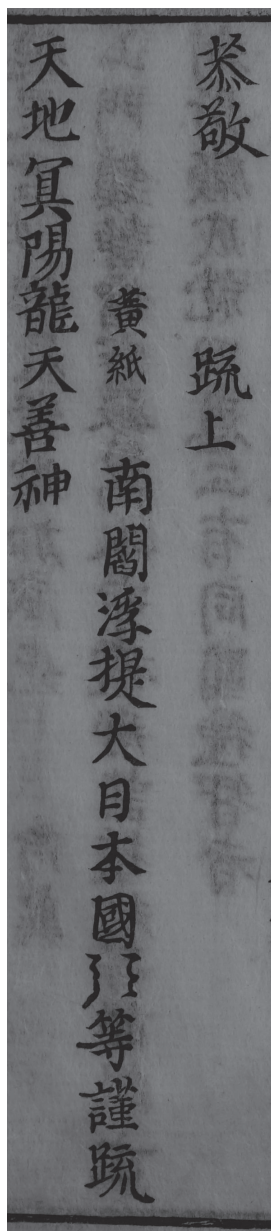 恭敬 疏上
黃紙 南閻浮提大日本國等謹疏
天地冥陽龍天善神